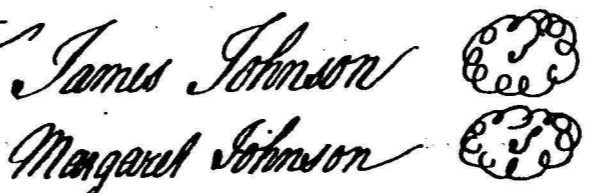 James Johnson
Margaret Johnson